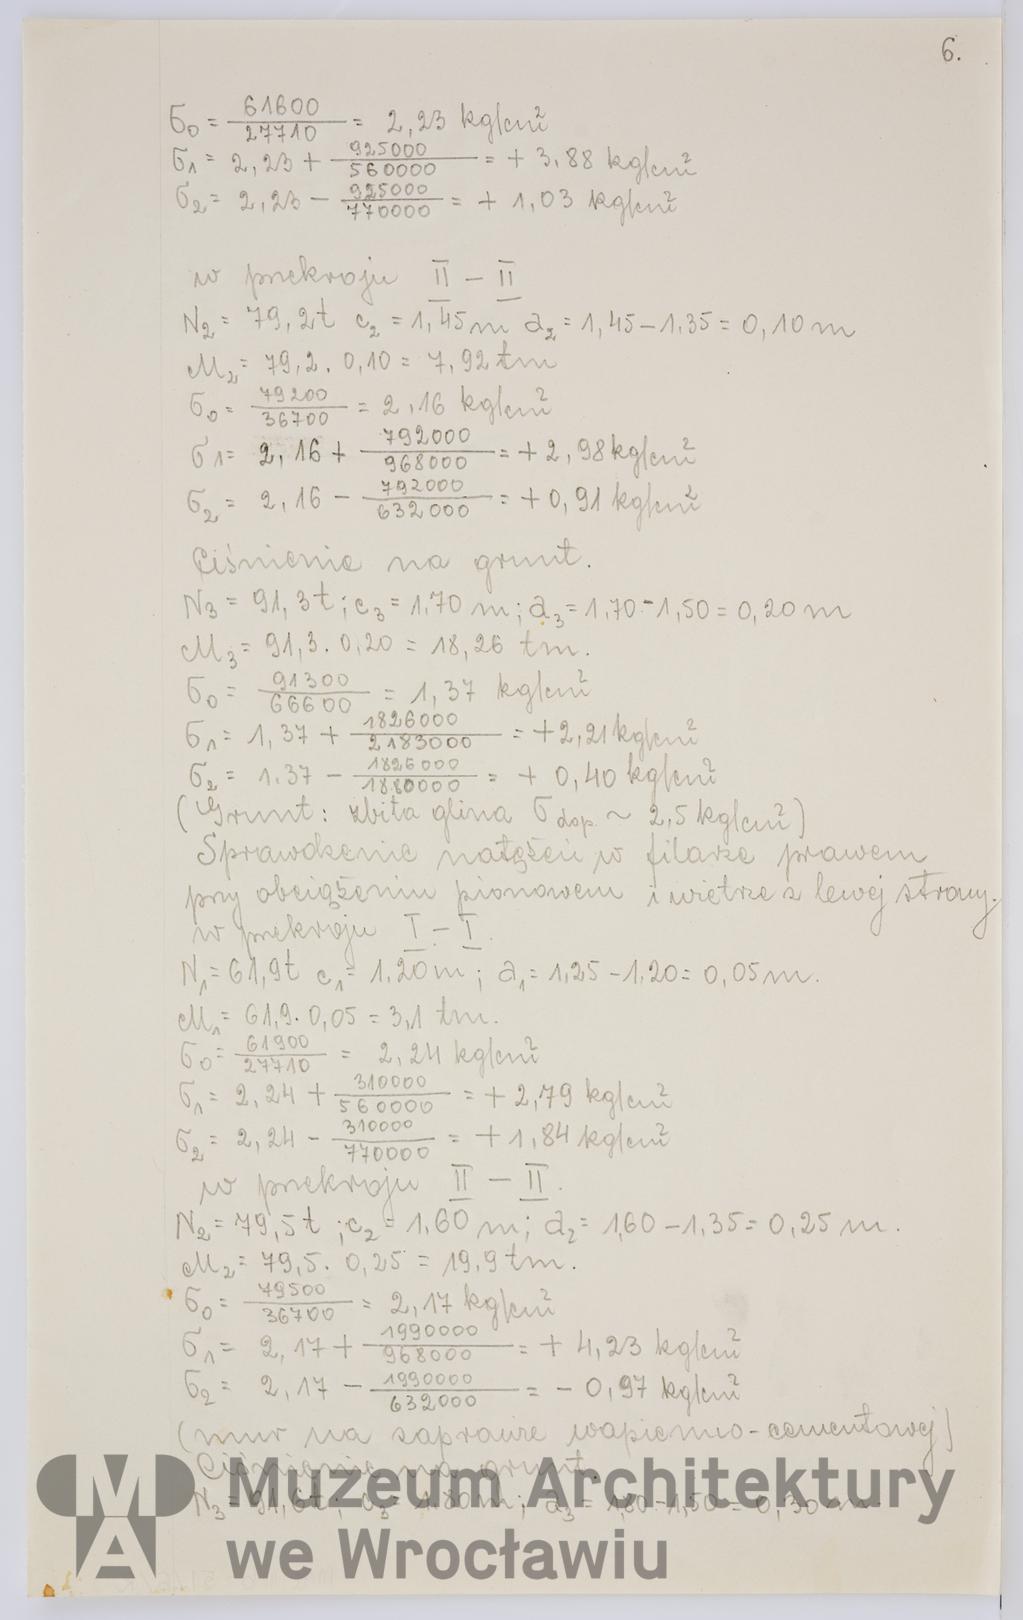 6.
σ₀ = 61600/27710 = 2,23 kg/cm²
σ₁ = 2,23 + 925000/560000 = + 3,88 kg/cm²
σ₂ = 2,23 − 925000/770000 = + 1,03 kg/cm²
w przekroju II − II
N₂ = 79,2t c₂ = 1,45 m a₂ = 1,45 − 1,35 = 0,10 m
M₂ = 79,2 . 0,10 = 7,92 tm
σ₀ = 79200/36700 = 2,16 kg/cm²
σ₁ = 2,16 + 792000/968000 = + 2,98 kg/cm²
σ₂ = 2,16 − 792000/632000 = + 0,91 kg/cm²
Ciśnienie na grunt.
N₃ = 91,3t ; c₃ = 1,70 m ; a₃ = 1,70 − 1,50 = 0,20 m
M₃ = 91,3 . 0,20 = 18,26 tm.
σ₀ = 91300/66600 = 1,37 kg/cm²
σ₁ = 1,37 + 1826000/2183000 = + 2,21 kg/cm²
σ₂ = 1.37 − 1826000/1880000 = + 0,40 kg/cm²
(Grunt: zbita glina σ dop. ~ 2,5 kg/cm²)
Sprawdzenie natężeń w filarze prawem
przy obciążeniu pionowem i wietrze z lewej strony.
w przekroju I − I.
N₁ = 61,9t c₁ = 1.20 m ; a₁ = 1,25 − 1,20 = 0,05 m.
M₁ = 61,9 . 0,05 = 3,1 tm.
σ₀ = 61900/27710 = 2,24 kg/cm²
σ₁ = 2,24 + 310000/560000 = + 2,79 kg/cm²
σ₂ = 2,24 − 310000/770000 = + 1,84 kg/cm²
w przekroju II − II.
N₂ = 79,5t ; c₂ = 1,60 m ; a₂ = 1,60 − 1,35 = 0,25 m.
M₂ = 79,5 . 0,25 = 19,9 tm.
σ₀ = 79500/36700 = 2,17 kg/cm²
σ₁ = 2,17 + 1990000/968000 = + 4,23 kg/cm²
σ₂ = 2,17 − 1990000/632000 = − 0,97 kg/cm²
(mur na zaprawie wapienno-cementowej)
Ciśnienie na grunt.
N₃ = 91,6t ; c₃ = 1.80 m ; a₃ = 1,80 − 1,50 = 0,30 m
MA
Muzeum Architektury
we Wrocławiu